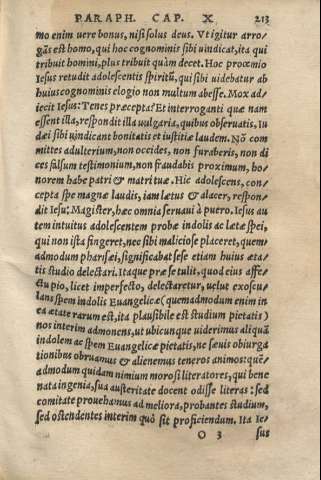 PARAPH. CAP. X 213
mo enim uere bonus, nisi solus deus. Vtigitur arro-
gãs est homo, qui hoc cognominis sibi uindicat, ita qui
tribuit homini, plus tribuit quàm decet. Hoc proœmio
Iesus retudit adolescentis spiritũ, qui sibi uidebatur ab
huius cognominis elogio non multum abesse. Mox ad-
iecit Iesus: Tenes precepta? Et interroganti quæ nam
essent illa, respondit illa uulgaria, quibus obseruatis, Iu
dæi sibi uindicant bonitatis et iustitiæ laudem. Nõ com
mittes adulterium, non occides, non furaberis, non di
ces falsum testimonium, non fraudabis proximum, ho-
norem habe patri & matri tuæ. Hic adolescens, con-
cepta spe magnæ laudis, iam lætus & alacer, respon-
dit Iesu: Magister, hæc omnia seruaui à puero. Iesus au
tem intuitus adolescentem probæ indolis ac lætæ spei,
qui non ista fingeret, nec sibi maliciose placeret, quem-
admodum pharsæi, significabat sese etiam huius æta-
tis studio delectari. Itaque præ se tulit, quod eius affe-
ctu pio, licet imperfecto, delectaretur, uelut exoscu-
lans spem indolis Euangelicæ (quemadmodum enim in
ea ætate rarum est, ita plausibile est studium pietatis)
nos interim admonens, ut ubicunque uiderimus aliquã
indolem ac spem Euangelicæ pietatis, ne sæuis obiurga
tionibus obruamus & alienemus teneros animos: quẽ-
admodum quidam nimium morosi literatores, qui bene
nata ingenia, sua austeritate docent odisse literas: sed
comitate prouehamus ad meliora, probantes studium,
sed ostendentes interim quò sit proficiendum. Ita Ie-
O 3 sus